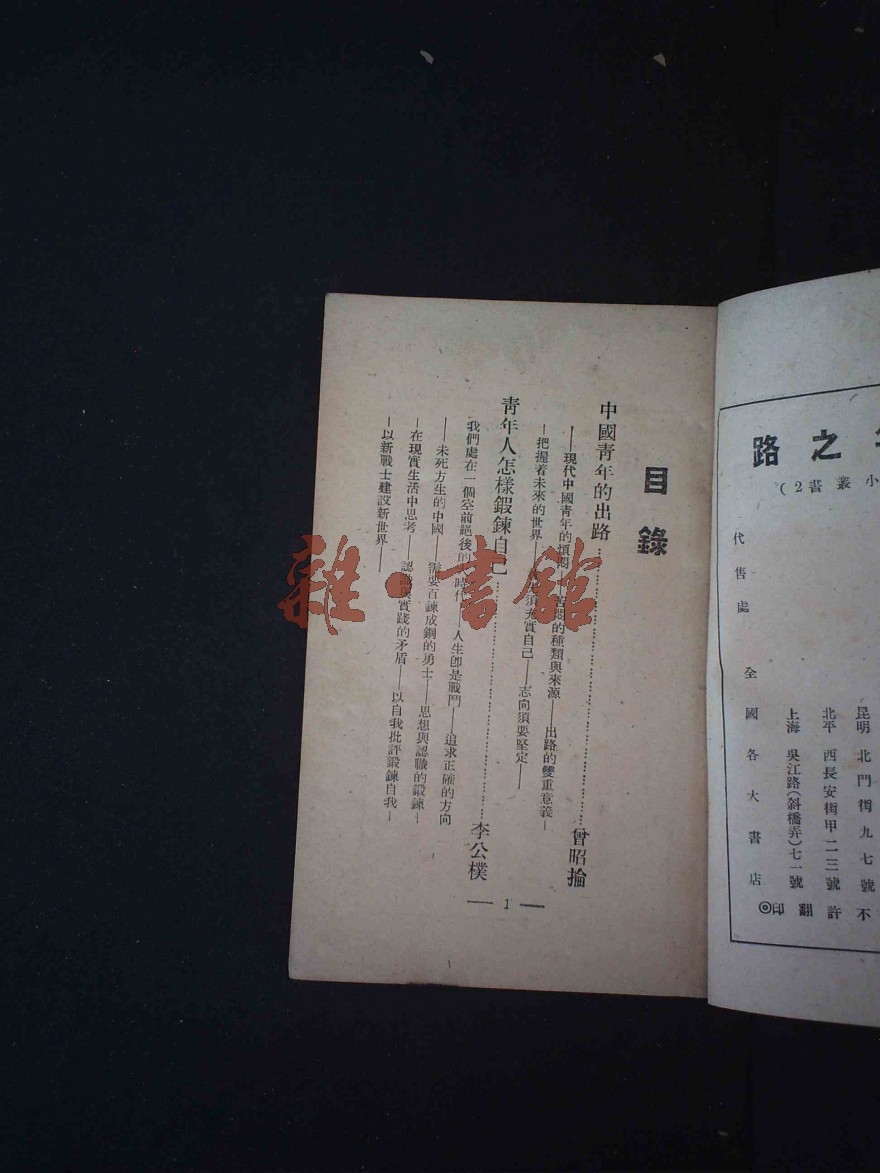 目錄
中國青年的出路……曾昭掄
——現代中國青年的煩悶——苦悶的種類與來源——出路的雙重意義—
—把握着未來的世界——須充實自己——志向須要堅定——
青年人怎樣鍛鍊自己……李公樸
我們處在一個空前絕後的時代——人生卽是戰鬥——追求正確的方向
——未死方生的中國——需要百鍊成鋼的勇士——思想與認識的鍛鍊—
—在現實生活中思考——認識與實踐的矛盾——以自我批評鍛鍊自我—
—以新戰士建設新世界——
— 1 —
之路
小叢書2)
昆明 北門街九七號
北平 西長安街甲二三號
上海 吳江路(斜橋弄)七一號
代售處 全國各大書店
不許翻印◎
雜·書館